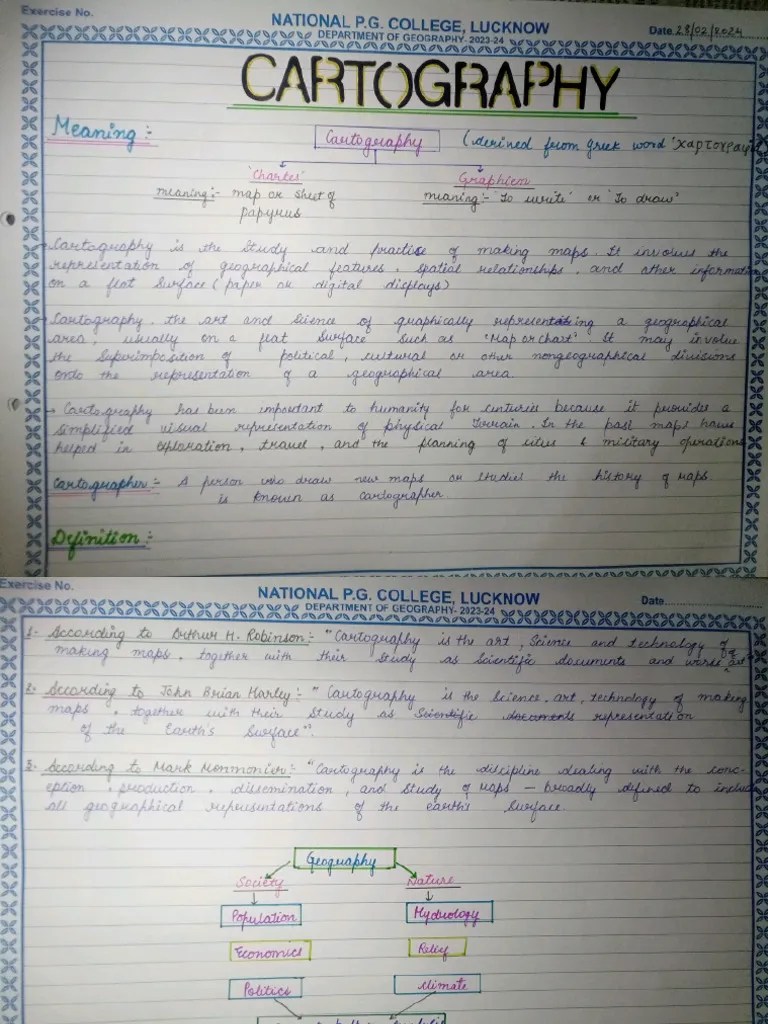 Exercise No.
NATIONAL P.G. COLLEGE, LUCKNOW
DEPARTMENT OF GEOGRAPHY- 2023-24
Date 28/02/2024
CARTOGRAPHY
Meaning :-
Cartography (derived from greek word '
'Chartes' Graphien
meaning :- map or sheet of papyrus
meaning :- 'To write' or 'To draw'
Cartography is the study and practise of making maps. It involves the
representation of geographical features, spatial relationships, and other informati
on a flat surface (paper or digital displays)
Cartography, the art and science of graphically representing a geographical
area, usually on a flat surface such as "Map or chart". It may involve
the superimposition of political, cultural or other nongeographical divisions
onto the representation of a geographical area.
→ Cartography has been important to humanity for centuries because it provides a
simplified visual representation of physical Terrain. In the past maps have
helped in exploration, travel, and the planning of cities & military operations
Cartographer :- A person who draw new maps or studies the history of maps.
is known as cartographer.
Definition :-
Exercise No.
NATIONAL P.G. COLLEGE, LUCKNOW
DEPARTMENT OF GEOGRAPHY- 2023-24
Date
1- According to Arthur H. Robinson :- "Cartography is the art, Science and technology of
making maps, together with their study as Scientific documents and works of art"
2- According to John Brian Harley :- "Cartography is the Science, art, technology of making
maps, together with their study as Scientific documents representation
of the Earth's Surface".
3- According to Mark Monmonier :- "Cartography is the discipline dealing with the conc-
eption, production, dissemination, and study of maps — broadly defined to includ
all geographical representations of the earth's surface.
Geography
Society Nature
Population Hydrology
Economics
Politics climate